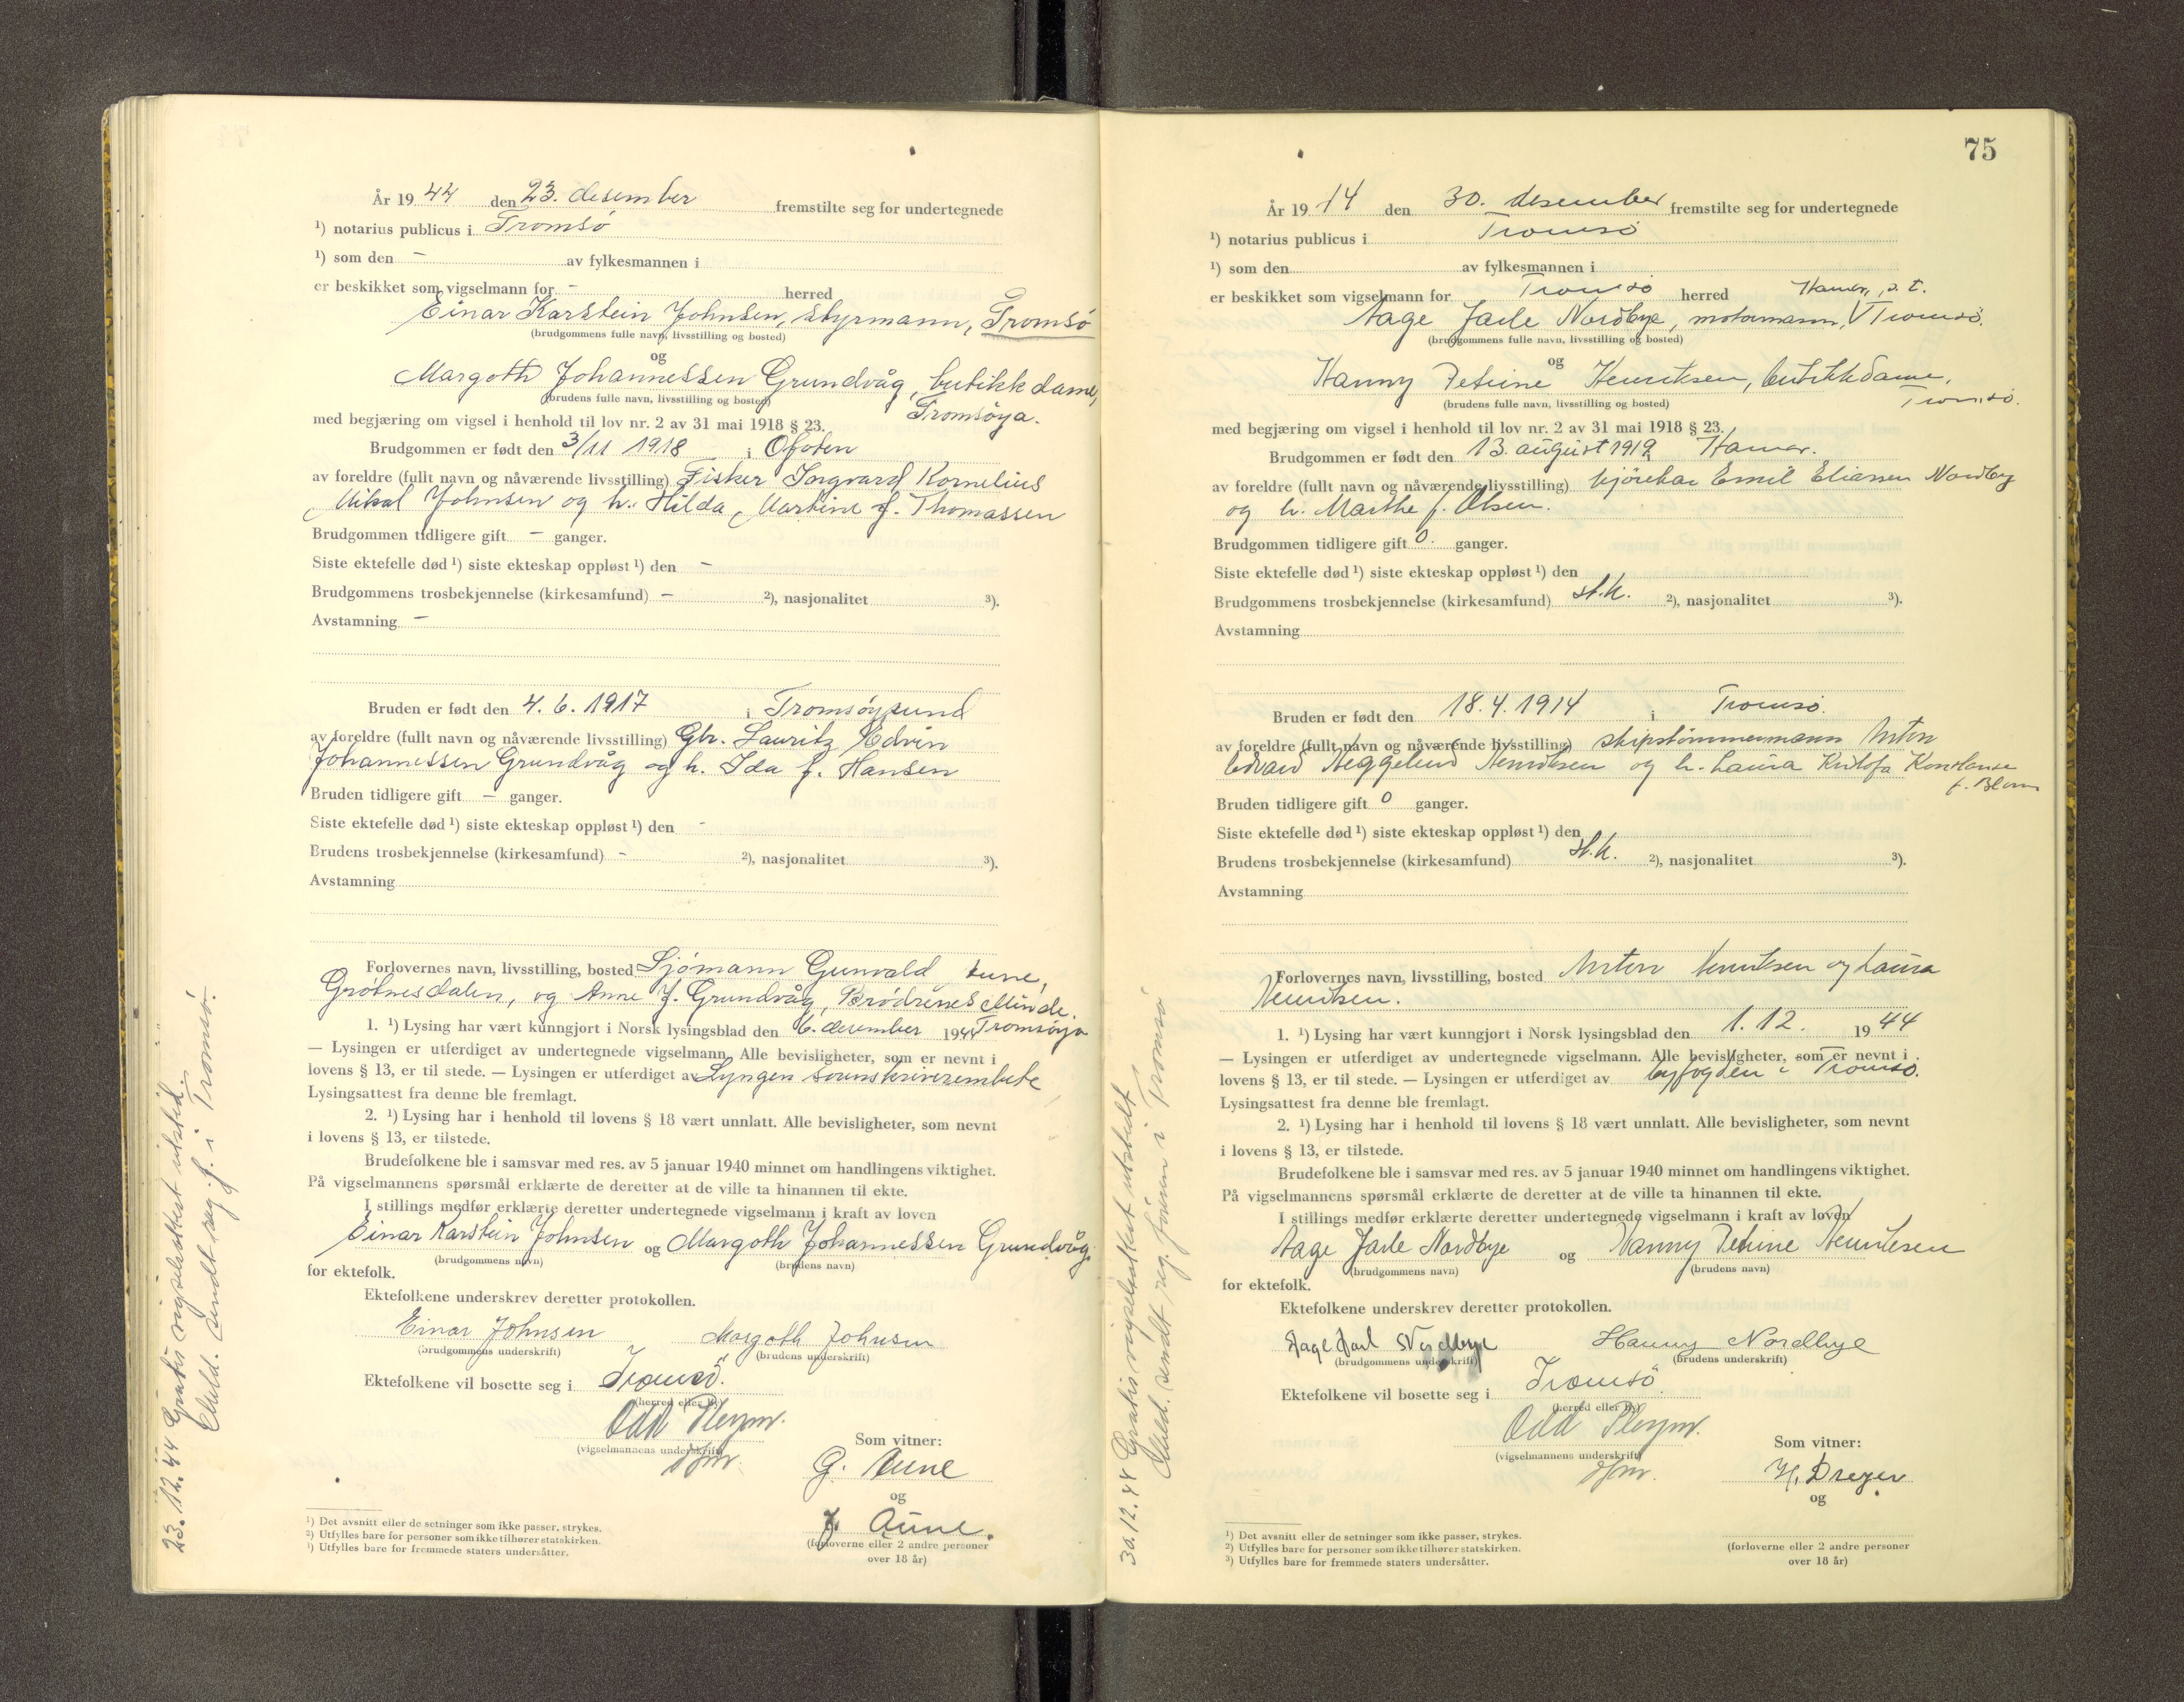 År 1944 den 23. desember fremstilte seg for undertegnede
¹) notarius publicus i Tromsø
¹) som den - av fylkesmannen i
er beskikket som vigselmann for - herred
Einar Karstein Johnsen, styrmann, Tromsø
(brudgommens fulle navn, livsstilling og bosted)
og
Margoth Johannessen Grundvåg, butikkdame,
(brudens fulle navn, livsstilling og bosted)
Tromsøya.
med begjæring om vigsel i henhold til lov nr. 2 av 31 mai 1918 § 23.
Brudgommen er født den 3/11 1918 i Ofoten
av foreldre (fullt navn og nåværende livsstilling) Fisker Ingvard Kornelius
Mikal Johnsen og h. Hilda Martine f. Thomassen
Brudgommen tidligere gift - ganger.
Siste ektefelle død ¹) siste ekteskap oppløst ¹) den -
Brudgommens trosbekjennelse (kirkesamfund) - ²), nasjonalitet ³).
Avstamning -
Bruden er født den 4. 6. 1917 i Tromsøysund
av foreldre (fullt navn og nåværende livsstilling) Gbr. Lauritz Edvin
Johannessen Grundvåg og h. Ida f. Hansen
Bruden tidligere gift - ganger.
Siste ektefelle død ¹) siste ekteskap oppløst ¹) den -
Brudens trosbekjennelse (kirkesamfund) - ²), nasjonalitet ³).
Avstamning
Forlovernes navn, livsstilling, bosted Sjømann Gunvald Aune,
Grøtnesdalen, og Anne J. Grundvåg, Brødrenes Minde.
1. ¹) Lysing har vært kunngjort i Norsk lysingsblad den 6. desember 1944 Tromsøya
— Lysingen er utferdiget av undertegnede vigselmann. Alle bevisligheter, som er nevnt i
lovens § 13, er til stede. — Lysingen er utferdiget av Lyngen sorenskriverembete
Lysingsattest fra denne ble fremlagt.
2. ¹) Lysing har i henhold til lovens § 18 vært unnlatt. Alle bevisligheter, som nevnt
i lovens § 13, er tilstede.
Brudefolkene ble i samsvar med res. av 5 januar 1940 minnet om handlingens viktighet.
På vigselmannens spørsmål erklærte de deretter at de ville ta hinannen til ekte.
I stillings medfør erklærte deretter undertegnede vigselmann i kraft av loven
Einar Karstein Johnsen og Margoth Johannessen Grundvåg
(brudgommens navn) (brudens navn)
for ektefolk.
Ektefolkene underskrev deretter protokollen.
Einar Johnsen Margoth Johnsen
(brudgommens underskrift) (brudens underskrift)
Ektefolkene vil bosette seg i Tromsø.
(herred eller by)
Odd
(vigselmannens underskrift)
Som vitner:
G. Aune
og
J. Aune.
(forloverne eller 2 andre personer
over 18 år)
¹) Det avsnitt eller de setninger som ikke passer, strykes.
²) Utfylles bare for personer som ikke tilhører statskirken.
³) Utfylles bare for fremmede staters undersåtter.
23. 12. 44 Gratis vigselattest utstedt.
Meld. sendt reg.f. i Tromsø.
75
År 1944 den 30. desember fremstilte seg for undertegnede
¹) notarius publicus i Tromsø
¹) som den av fylkesmannen i
er beskikket som vigselmann for Tromsø herred Hamar, p. t.
Aage Jarle Nordbye, motormann, V Tromsø.
(brudgommens fulle navn, livsstilling og bosted)
og
Hanny Petrine Henriksen, butikkdame,
(brudens fulle navn, livsstilling og bosted)
Tromsø.
med begjæring om vigsel i henhold til lov nr. 2 av 31 mai 1918 § 23.
Brudgommen er født den 13. august 1919 Hamar.
av foreldre (fullt navn og nåværende livsstilling) kjørekar Emil Eliassen Nordby
og h. Marthe f. Olsen.
Brudgommen tidligere gift 0. ganger.
Siste ektefelle død ¹) siste ekteskap oppløst ¹) den
Brudgommens trosbekjennelse (kirkesamfund) st.k. ²), nasjonalitet ³).
Avstamning
Bruden er født den 18. 4. 1914 i Tromsø.
av foreldre (fullt navn og nåværende livsstilling) skipstømmermann Anton
Edvard Heggelund Henriksen og h. Laura Kristofa Konstanse
f. Blom
Bruden tidligere gift 0 ganger.
Siste ektefelle død ¹) siste ekteskap oppløst ¹) den
Brudens trosbekjennelse (kirkesamfund) st.k. ²), nasjonalitet ³).
Avstamning
Forlovernes navn, livsstilling, bosted Anton Henriksen og Laura
Henriksen.
1. ¹) Lysing har vært kunngjort i Norsk lysingsblad den 1. 12. 1944
— Lysingen er utferdiget av undertegnede vigselmann. Alle bevisligheter, som er nevnt i
lovens § 13, er til stede. — Lysingen er utferdiget av byfogden i Tromsø.
Lysingsattest fra denne ble fremlagt.
2. ¹) Lysing har i henhold til lovens § 18 vært unnlatt. Alle bevisligheter, som nevnt
i lovens § 13, er tilstede.
Brudefolkene ble i samsvar med res. av 5 januar 1940 minnet om handlingens viktighet.
På vigselmannens spørsmål erklærte de deretter at de ville ta hinannen til ekte.
I stillings medfør erklærte deretter undertegnede vigselmann i kraft av loven
Aage Jarle Nordbye og Hanny Petrine Henriksen
(brudgommens navn) (brudens navn)
for ektefolk.
Ektefolkene underskrev deretter protokollen.
Aage Jarl Nordbye Hanny Nordbye
(brudgommens underskrift) (brudens underskrift)
Ektefolkene vil bosette seg i Tromsø
(herred eller by)
Odd
(vigselmannens underskrift)
Som vitner:
H. Dreyer
og
(forloverne eller 2 andre personer
over 18 år)
¹) Det avsnitt eller de setninger som ikke passer, strykes.
²) Utfylles bare for personer som ikke tilhører statskirken.
³) Utfylles bare for fremmede staters undersåtter.
30. 12. 44 Gratis vigselattest utstedt.
Meld. sendt reg. føreren i Tromsø